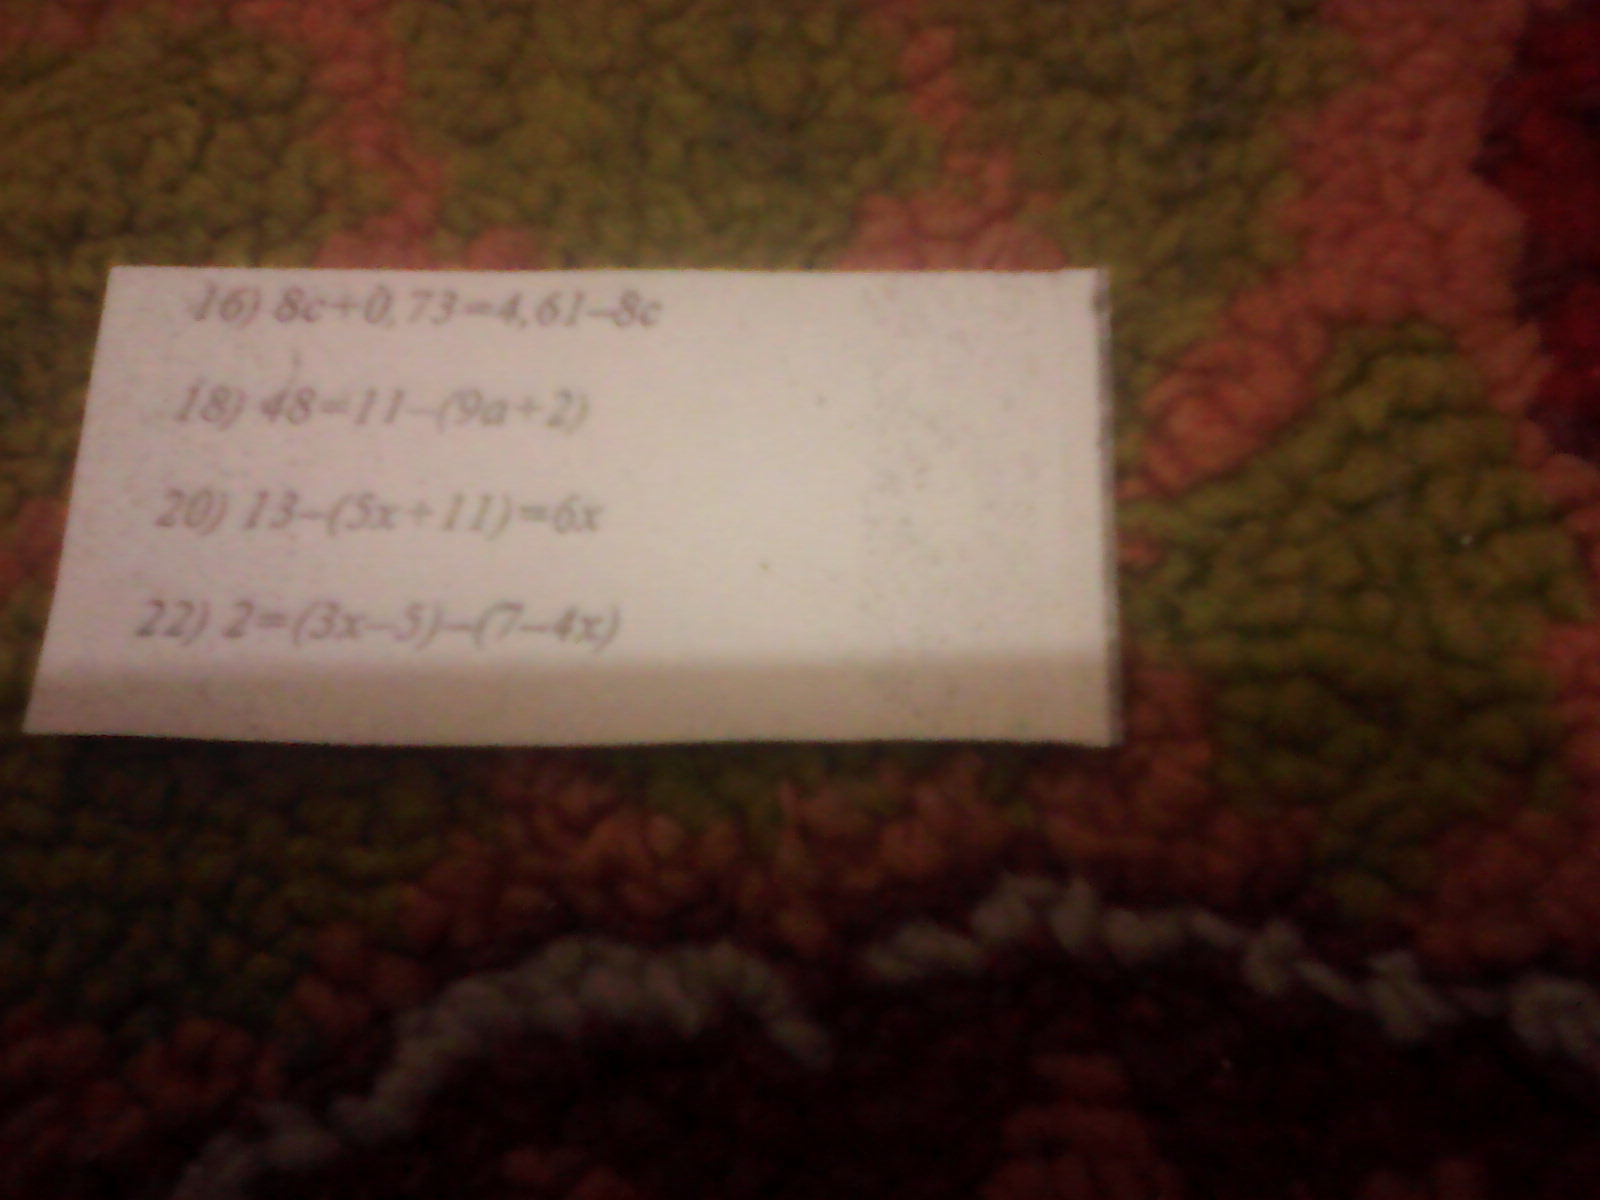 16) 8c+0,73=4,61–8c
18) 48=11–(9a+2)
20) 13–(5x+11)=6x
22) 2=(3x–5)–(7–4x)